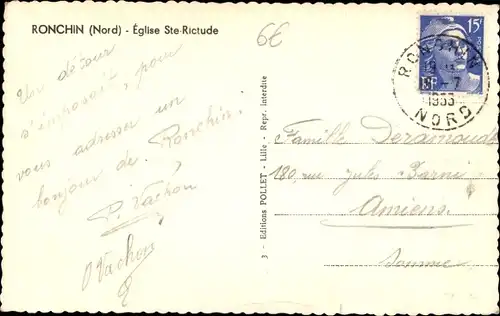 RONCHIN (Nord) - Église Ste-Rictude
6€
Un détour
s'imposait, pour
vous adresser un
bonjour de Ronchin.
P. Vachon
O Vachon
3 - Editions POLLET - Lille - Repr. interdite
15F
RF
RONCHIN
-7
1955
NORD
Famille Deramoudt
180, rue Jules Barni
Amiens
Somme